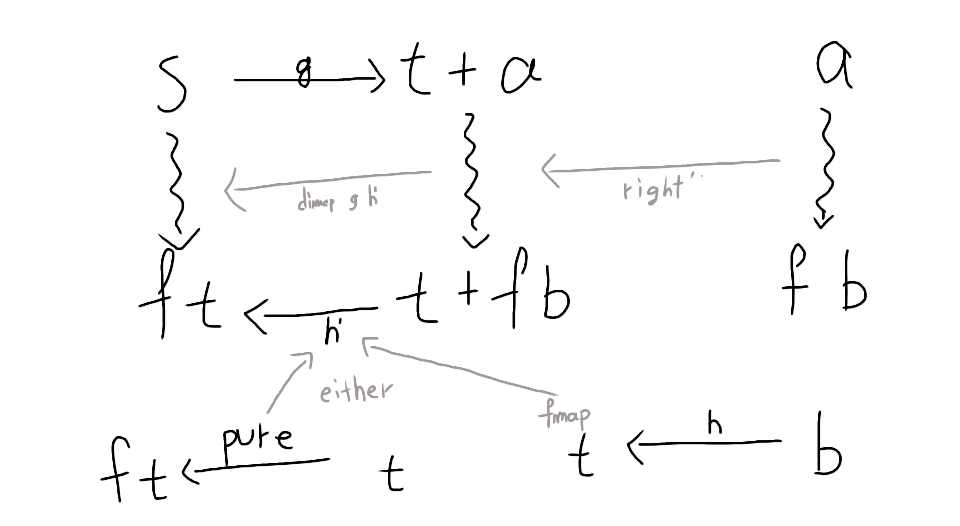 s g t + a a
dimap g h' right'
f t h' t + f b f b
either
fmap
f t pure t t h b